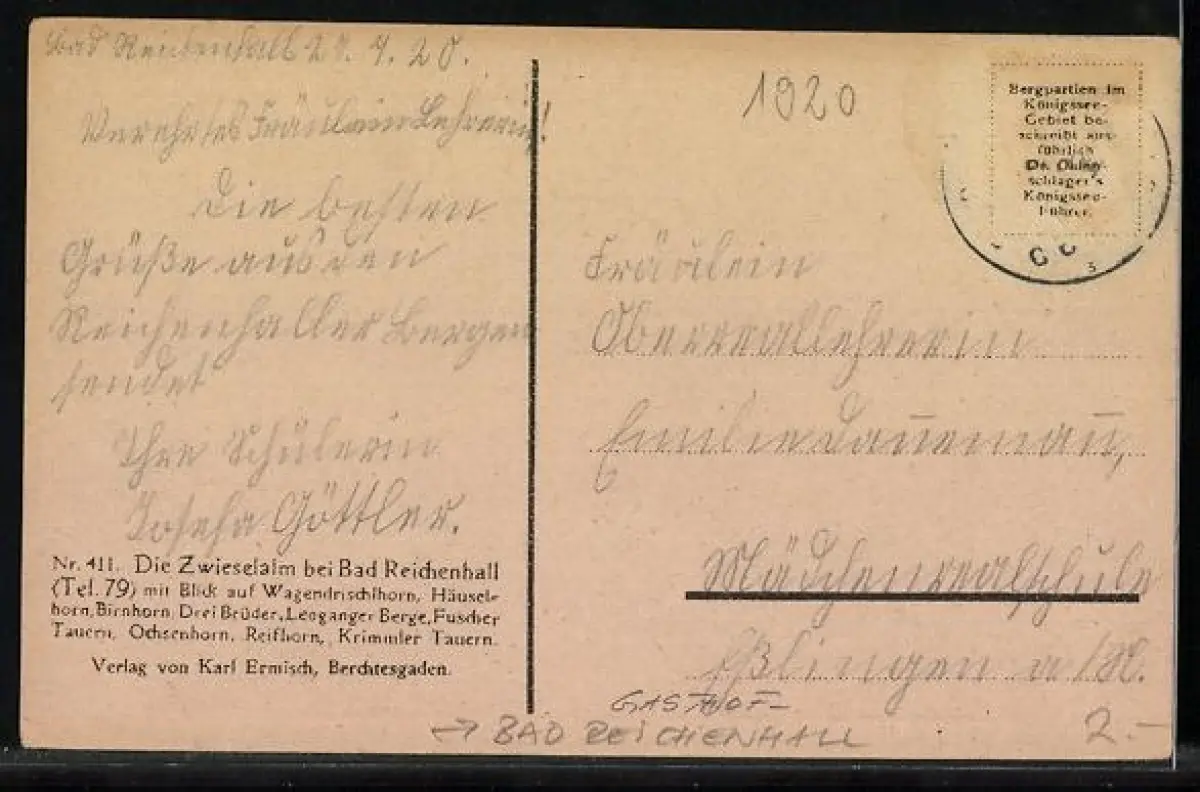 Bad Reichenhall 21. 4. 20.
Verehrtes Fräulein Lehrerin!
Die besten
Grüße aus den
Reichenhaller Bergen
sendet
Ihre Schülerin
Josefa Göttler.
Nr. 411. Die Zwieselalm bei Bad Reichenhall
(Tel. 79) mit Blick auf Wagendrischlhorn, Häusel-
horn, Birnhorn, Drei Brüder, Leoganger Berge, Fuscher
Tauern, Ochsenhorn, Reifhorn, Krimmler Tauern.
Verlag von Karl Ermisch, Berchtesgaden.
1920
Bergpartien im
Königssee-
Gebiet be-
schreibt aus-
führlich
Dr.
schlager's
Königssee-
Führer.
Fräulein
Oberreallehrerin
Emilie
Mädchenrealschule
Eßlingen a/N.
GASTHOF
→ BAD REICHENHALL
2.-